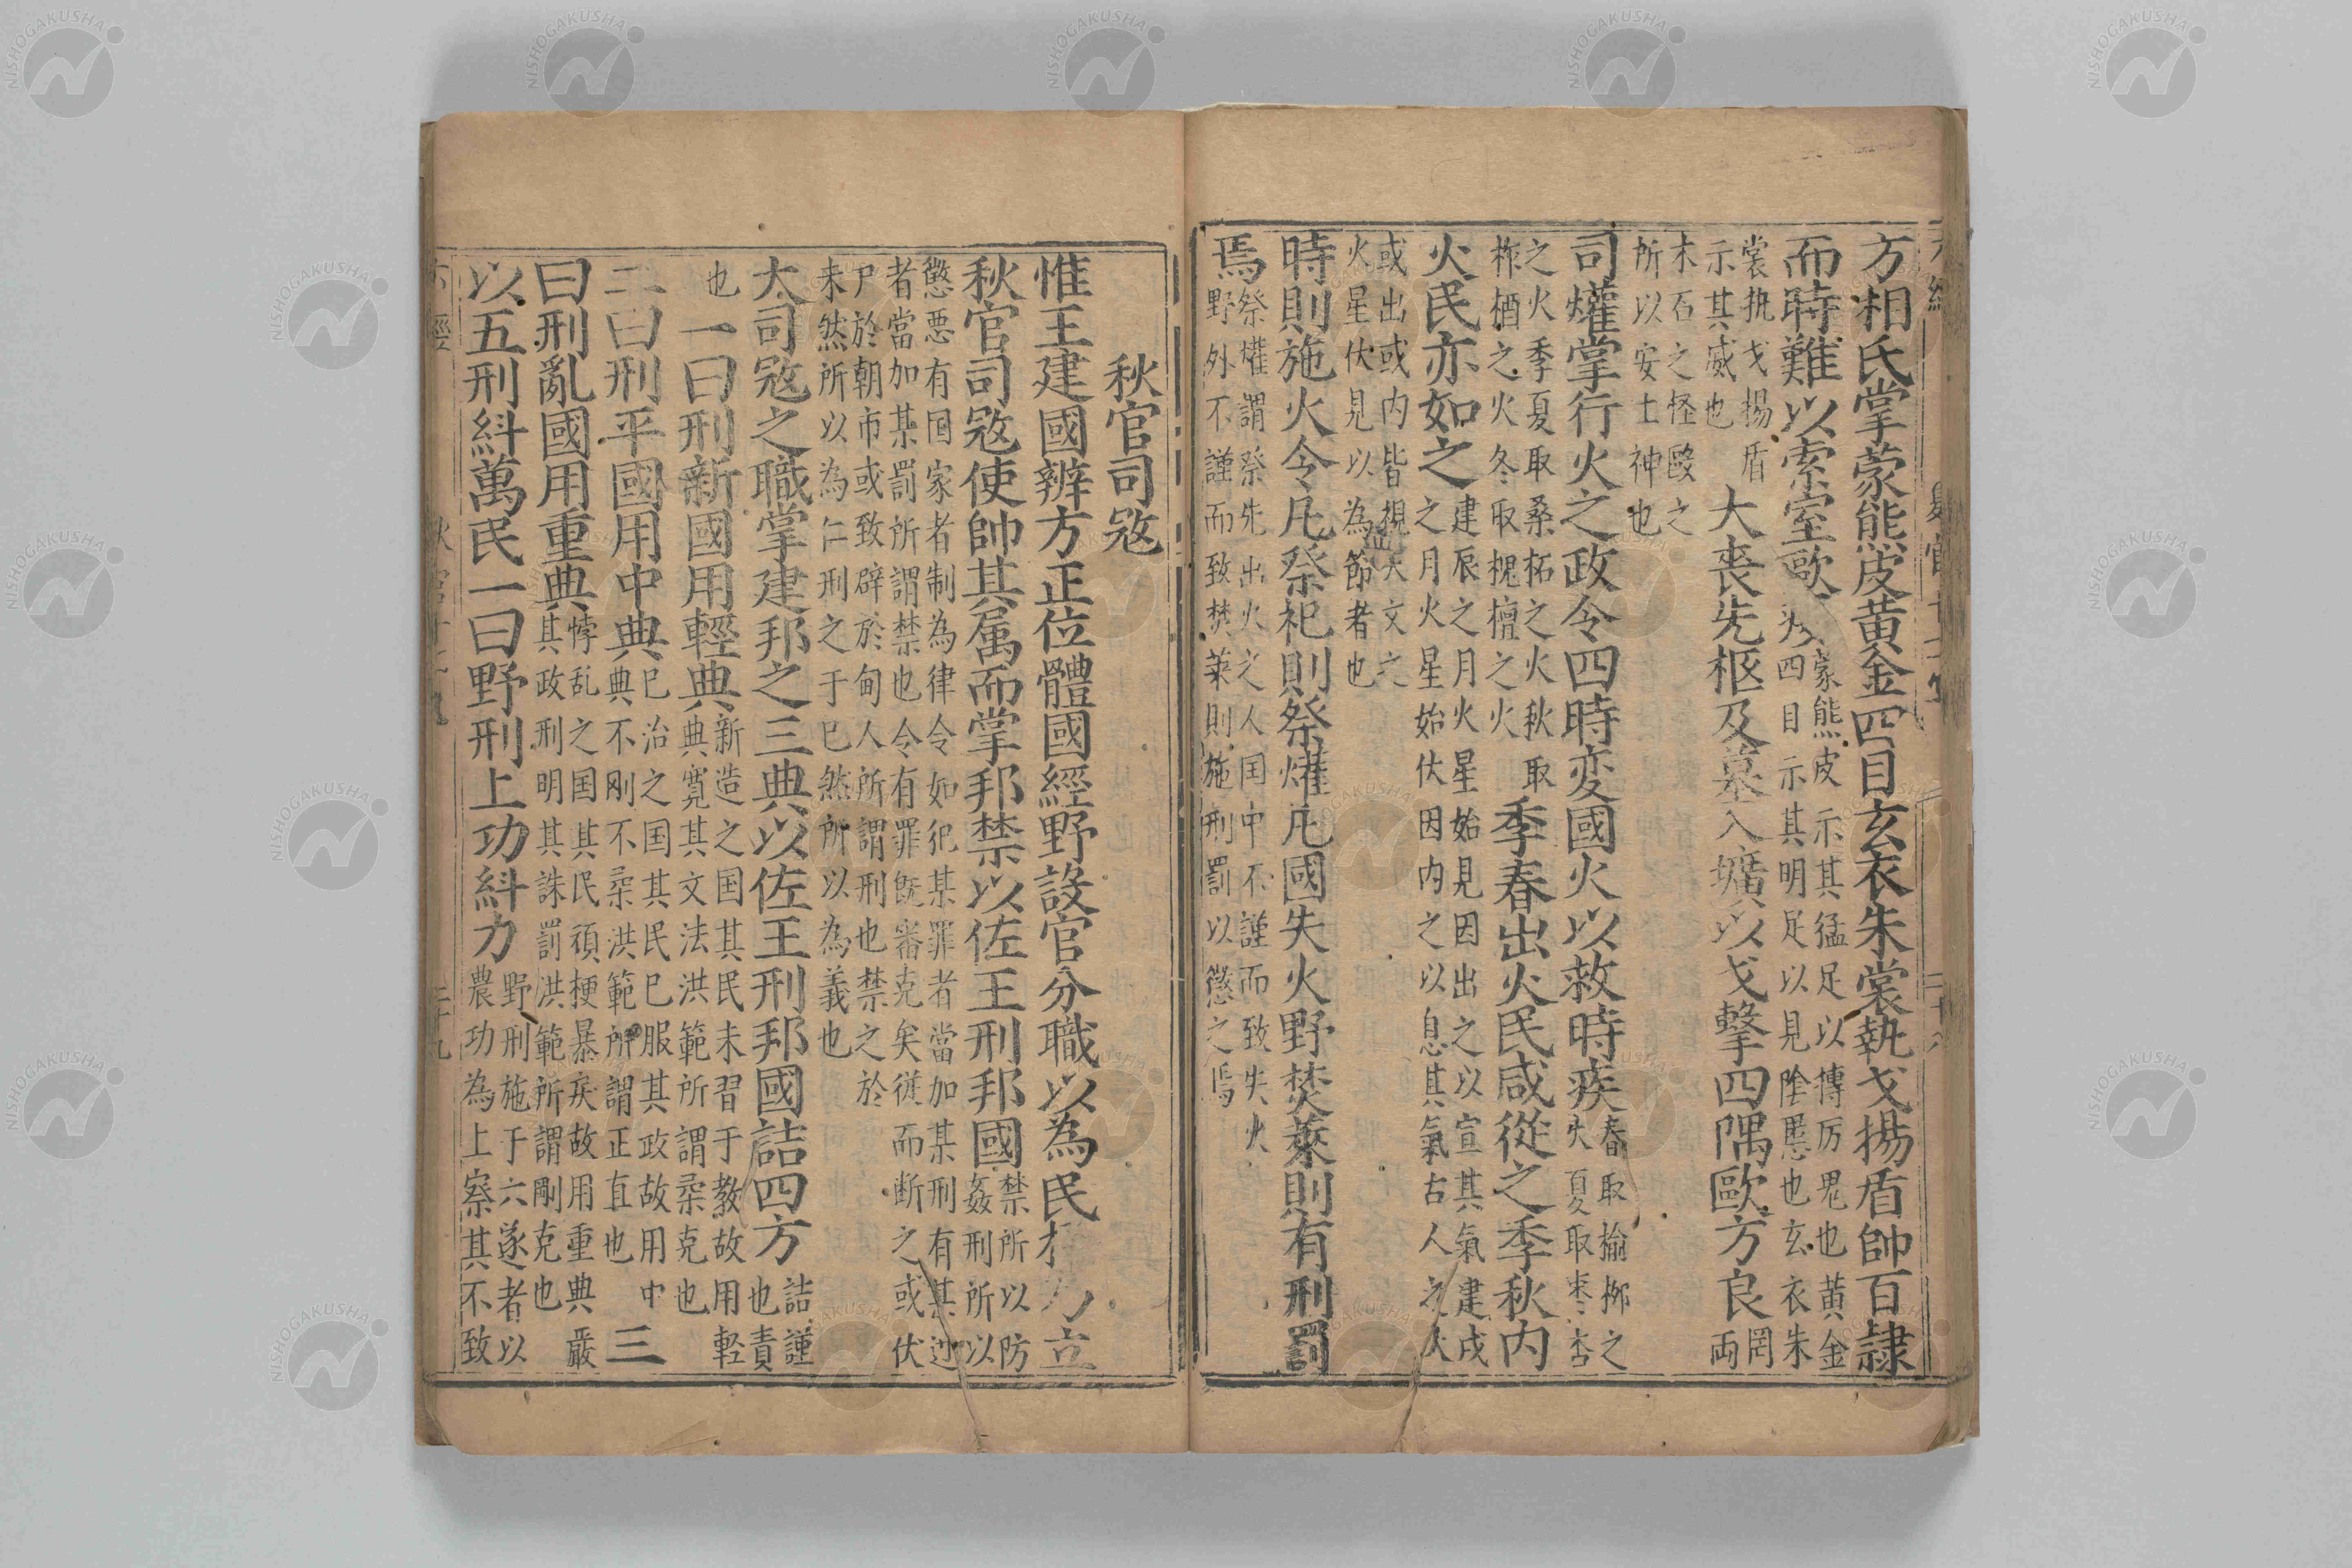 方相氏掌蒙熊皮黄金四目玄衣朱裳執戈揚盾帥百隷
而時難以索室歐
蒙熊皮示其猛足以傳厉鬼也黄金
四目示其明足以見隂慝也玄衣朱
裳執戈揚盾
示其威也
大喪先柩及墓入壙以戈擊四隅歐方良
罔
両
木石之怪歐之
所以安土神也
司爟掌行火之政令四時変國火以救時疾
春取榆柳之
火夏取枣杏
之火季夏取桑柘之火秋取
柞楢之火冬取槐檀之火
季春出火民咸從之季秋内
火民亦如之
建辰之月火星始見因出之以宣其氣建戌
之月火星始伏因内之以息其氣古人之火
或出或内皆視天文之
火星伏見以為節者也
時則施火令凡祭祀則祭爟凡國失火野焚萊則有刑罰
焉
祭爟謂祭先出火之人国中不謹而致失火
野外不謹而致焚萊則施刑罰以懲之焉
秋官司㓂
惟王建國辨方正位體國經野設官分職以為民立
秋官司㓂使帥其属而掌邦禁以佐王刑邦國
禁所以防
姦刑所以
懲悪有国家者制為律令如犯某罪者當加某刑有某
者當加某罰所謂禁也令有罪既審克矣従而断之或伏
尸於朝市或致辟於甸人所謂刑也禁之於
未然所以為仁刑之于已然所以為義也
大司㓂之職掌建邦之三典以佐王刑邦國詰四方
詰謹
也責
也
一曰刑新國用輕典
新造之国其民未習于教故用軽
典寛其文法洪範所謂柔克也
二曰刑平國用中典
已治之国其民已服其政故用中
典不刚不柔洪範所謂正直也
三
曰刑亂國用重典
悖乱之国其民頑梗暴戾故用重典嚴
其政刑明其誅罰洪範所謂剛克也
以五刑糾萬民一曰野刑上功糾力
野刑施于六遂者以
農功為上察其不致